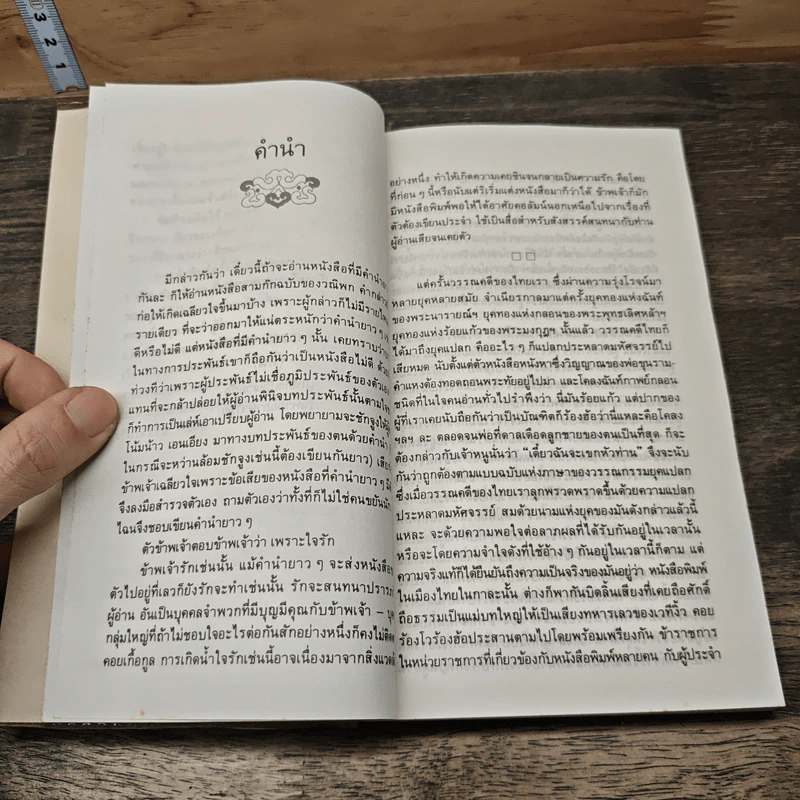 3 2 1
คำนำ
มีกล่าวกันว่า เดี๋ยวนี้ถ้าจะอ่านหนังสือที่มีคำนำยาว
กันละ ก็ให้อ่านหนังสือสามก๊กฉบับของวณิพก คำกล่าว
ก่อให้เกิดเฉลียวใจขึ้นมาบ้าง เพราะผู้กล่าวก็ไม่มีราย
รายเดียว ที่จะว่าออกมาให้แน่ตระหนักว่าคำนำยาว ๆ
ดีหรือไม่ดี แต่หนังสือที่มีคำนำยาว ๆ นั้น เคยทราบว่า
ในทางการประพันธ์เขาก็ถือกันว่าเป็นหนังสือไม่ดี ด้วย
ท่วงทีว่าเพราะผู้ประพันธ์ไม่เชื่อภูมิประพันธ์ของตัวเอง
แทนที่จะกล้าปล่อยให้ผู้อ่านพินิจบทประพันธ์นั้นตามใจ
ก็ทำการเป็นเล่ห์เอาเปรียบผู้อ่าน โดยพยายามจะชักจูงให้
โน้มน้าว เอนเอียง มาทางบทประพันธ์ของตนด้วยคำนำ
ในกรณีจะหว่านล้อมชักจูงเช่นนี้ต้องเขียนกันยาว)
ข้าพเจ้าเฉลียวใจเพราะข้อเสียของหนังสือที่คำนำยาว ๆ
จึงลงมือสำรวจตัวเอง ถามตัวเองว่าทั้งที่ก็ไม่ใช่คนขยันนัก
ไฉนจึงชอบเขียนคำนำยาว ๆ
ตัวข้าพเจ้าตอบข้าพเจ้าว่า เพราะใจรัก
ข้าพเจ้ารักเช่นนั้น แม้คำนำยาว ๆ จะส่งหนังสือ
ตัวไปอยู่ที่เลวก็ยังรักจะทำเช่นนั้น รักจะสนทนาปราศ
ผู้อ่าน อันเป็นบุคคลจำพวกที่มีบุญมีคุณกับข้าพเจ้า –
กลุ่มใหญ่ที่ถ้าไม่ชอบใจอะไรต่อกันสักอย่างหนึ่งก็คงไม่
คอยเกื้อกูล การเกิดน้ำใจรักเช่นนี้อาจเนื่องมาจากสิ่งแวดล้อม
อย่างหนึ่ง ทำให้เกิดความเคยชินจนกลายเป็นความรัก คือโดย
ที่ก่อน ๆ นี้หรือนับแต่ริเริ่มแต่งหนังสือมาก็ว่าได้ ข้าพเจ้าก็มัก
มีหนังสือพิมพ์พอให้ได้อาศัยคอลัมน์นอกเหนือไปจากเรื่องที่
ตัวต้องเขียนประจำ ใช้เป็นสื่อสำหรับสังสรรค์สนทนากับท่าน
ผู้อ่านเสียจนเคยตัว
แต่ครั้นวรรณคดีของไทยเรา ซึ่งผ่านความรุ่งโรจน์มา
หลายยุคหลายสมัย จำเนียรกาลมาแต่ครั้งยุคทองแห่งฉันท์
ของพระนารายณ์ฯ ยุคทองแห่งกลอนของพระพุทธเลิศหล้าฯ
ยุคทองแห่งร้อยแก้วของพระมงกุฎฯ นั้นแล้ว วรรณคดีไทยก็
ได้มาถึงยุคแปลก คืออะไร ๆ ก็แปลกประหลาดมหัศจรรย์ไป
เสียหมด นับตั้งแต่ตัวหนังสือหนังหาซึ่งวิญญาณของพ่อขุนราม
คำแหงต้องทอดถอนพระทัยอยู่ไปมา และโคลงฉันท์กาพย์กลอน
ชนิดที่ในใจคนอ่านทั่วไปรำพึงว่า นี่มันร้อยแก้ว แต่ปากของ
ผู้ที่เราเคยนับถือกันว่าเป็นบัณฑิตก็ร้องฮ้อว่านี่แหละคือโคลง
ฯลฯ ละ ตลอดจนพ่อที่ดาลเดือดลูกชายของตนเป็นที่สุด ก็จะ
ต้องกล่าวกับเจ้าหนูนั่นว่า “เดี๋ยวฉันจะเขกหัวท่าน” จึงจะนับ
กันว่าถูกต้องตามแบบฉบับแห่งภาษาของวรรณกรรมยุคแปลก
ซึ่งเมื่อวรรณคดีของไทยเราลุกพรวดพราดขึ้นด้วยความแปลก
ประหลาดมหัศจรรย์ สมด้วยนามแห่งยุคของมันดังกล่าวแล้วนี้
แหละ จะด้วยความพอใจต่อลาภผลที่ได้รับกันอยู่ในเวลานั้น
หรือจะโดยความจำใจดังที่ใช้อ้าง ๆ กันอยู่ในเวลานี้ก็ตาม แต่
ความจริงแท้ก็ได้ยืนยันถึงความเป็นจริงของมันอยู่ว่า หนังสือพิมพ์
ในเมืองไทยในกาละนั้น ต่างก็พากันบิดลิ้นเสียงที่เคยถือศักดิ์
ถือธรรมเป็นแม่บทใหญ่ให้เป็นเสียงทหารเลวของเวทีงิ้ว คอย
ร้องโว้ร้องฮ้อประสานตามไปโดยพร้อมเพรียงกัน ข้าราชการ
ในหน่วยราชการที่เกี่ยวข้องกับหนังสือพิมพ์หลายคน กับผู้ประจำ